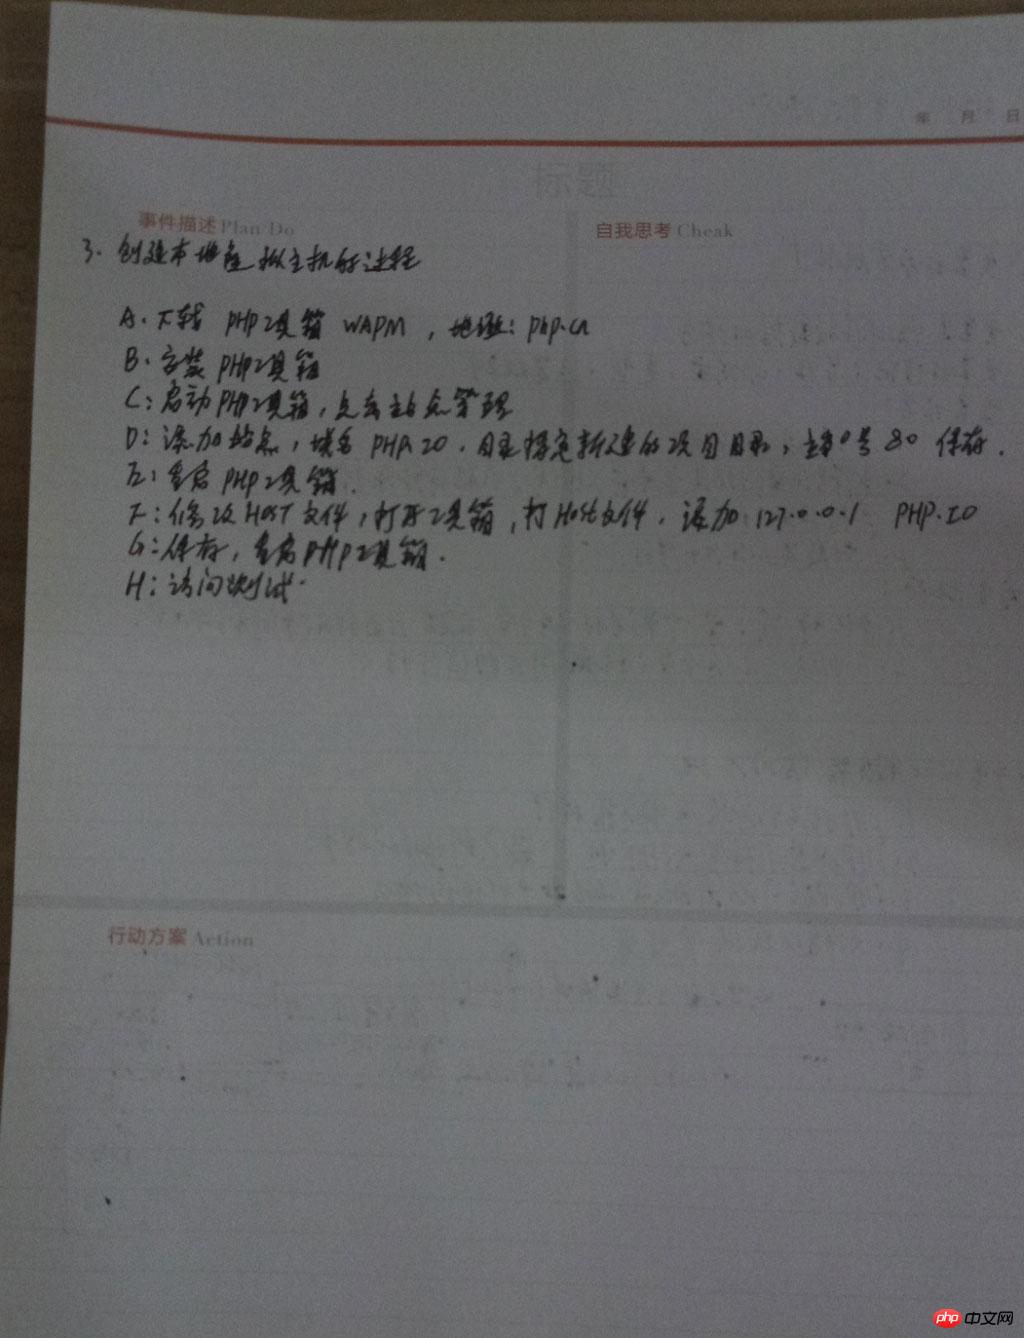 年 月 日
标题
事件描述 Plan Do
自我思考 Cheak
3. 创建本地虚拟主机的过程
A. 下载 PHP工具箱 WAPM，地址：php.cn
B. 安装 PHP工具箱
C：启动PHP工具箱，点击站点管理
D：添加站点，域名 PHP.IO. 目录指定新建的项目目录，端口号 80 保存.
E：重启 PHP工具箱.
F：修改HOST文件，打开工具箱，打Host文件. 添加 127.0.0.1 PHP.IO
G：保存，重启PHP工具箱.
H：访问测试.
行动方案 Action
php 中文网